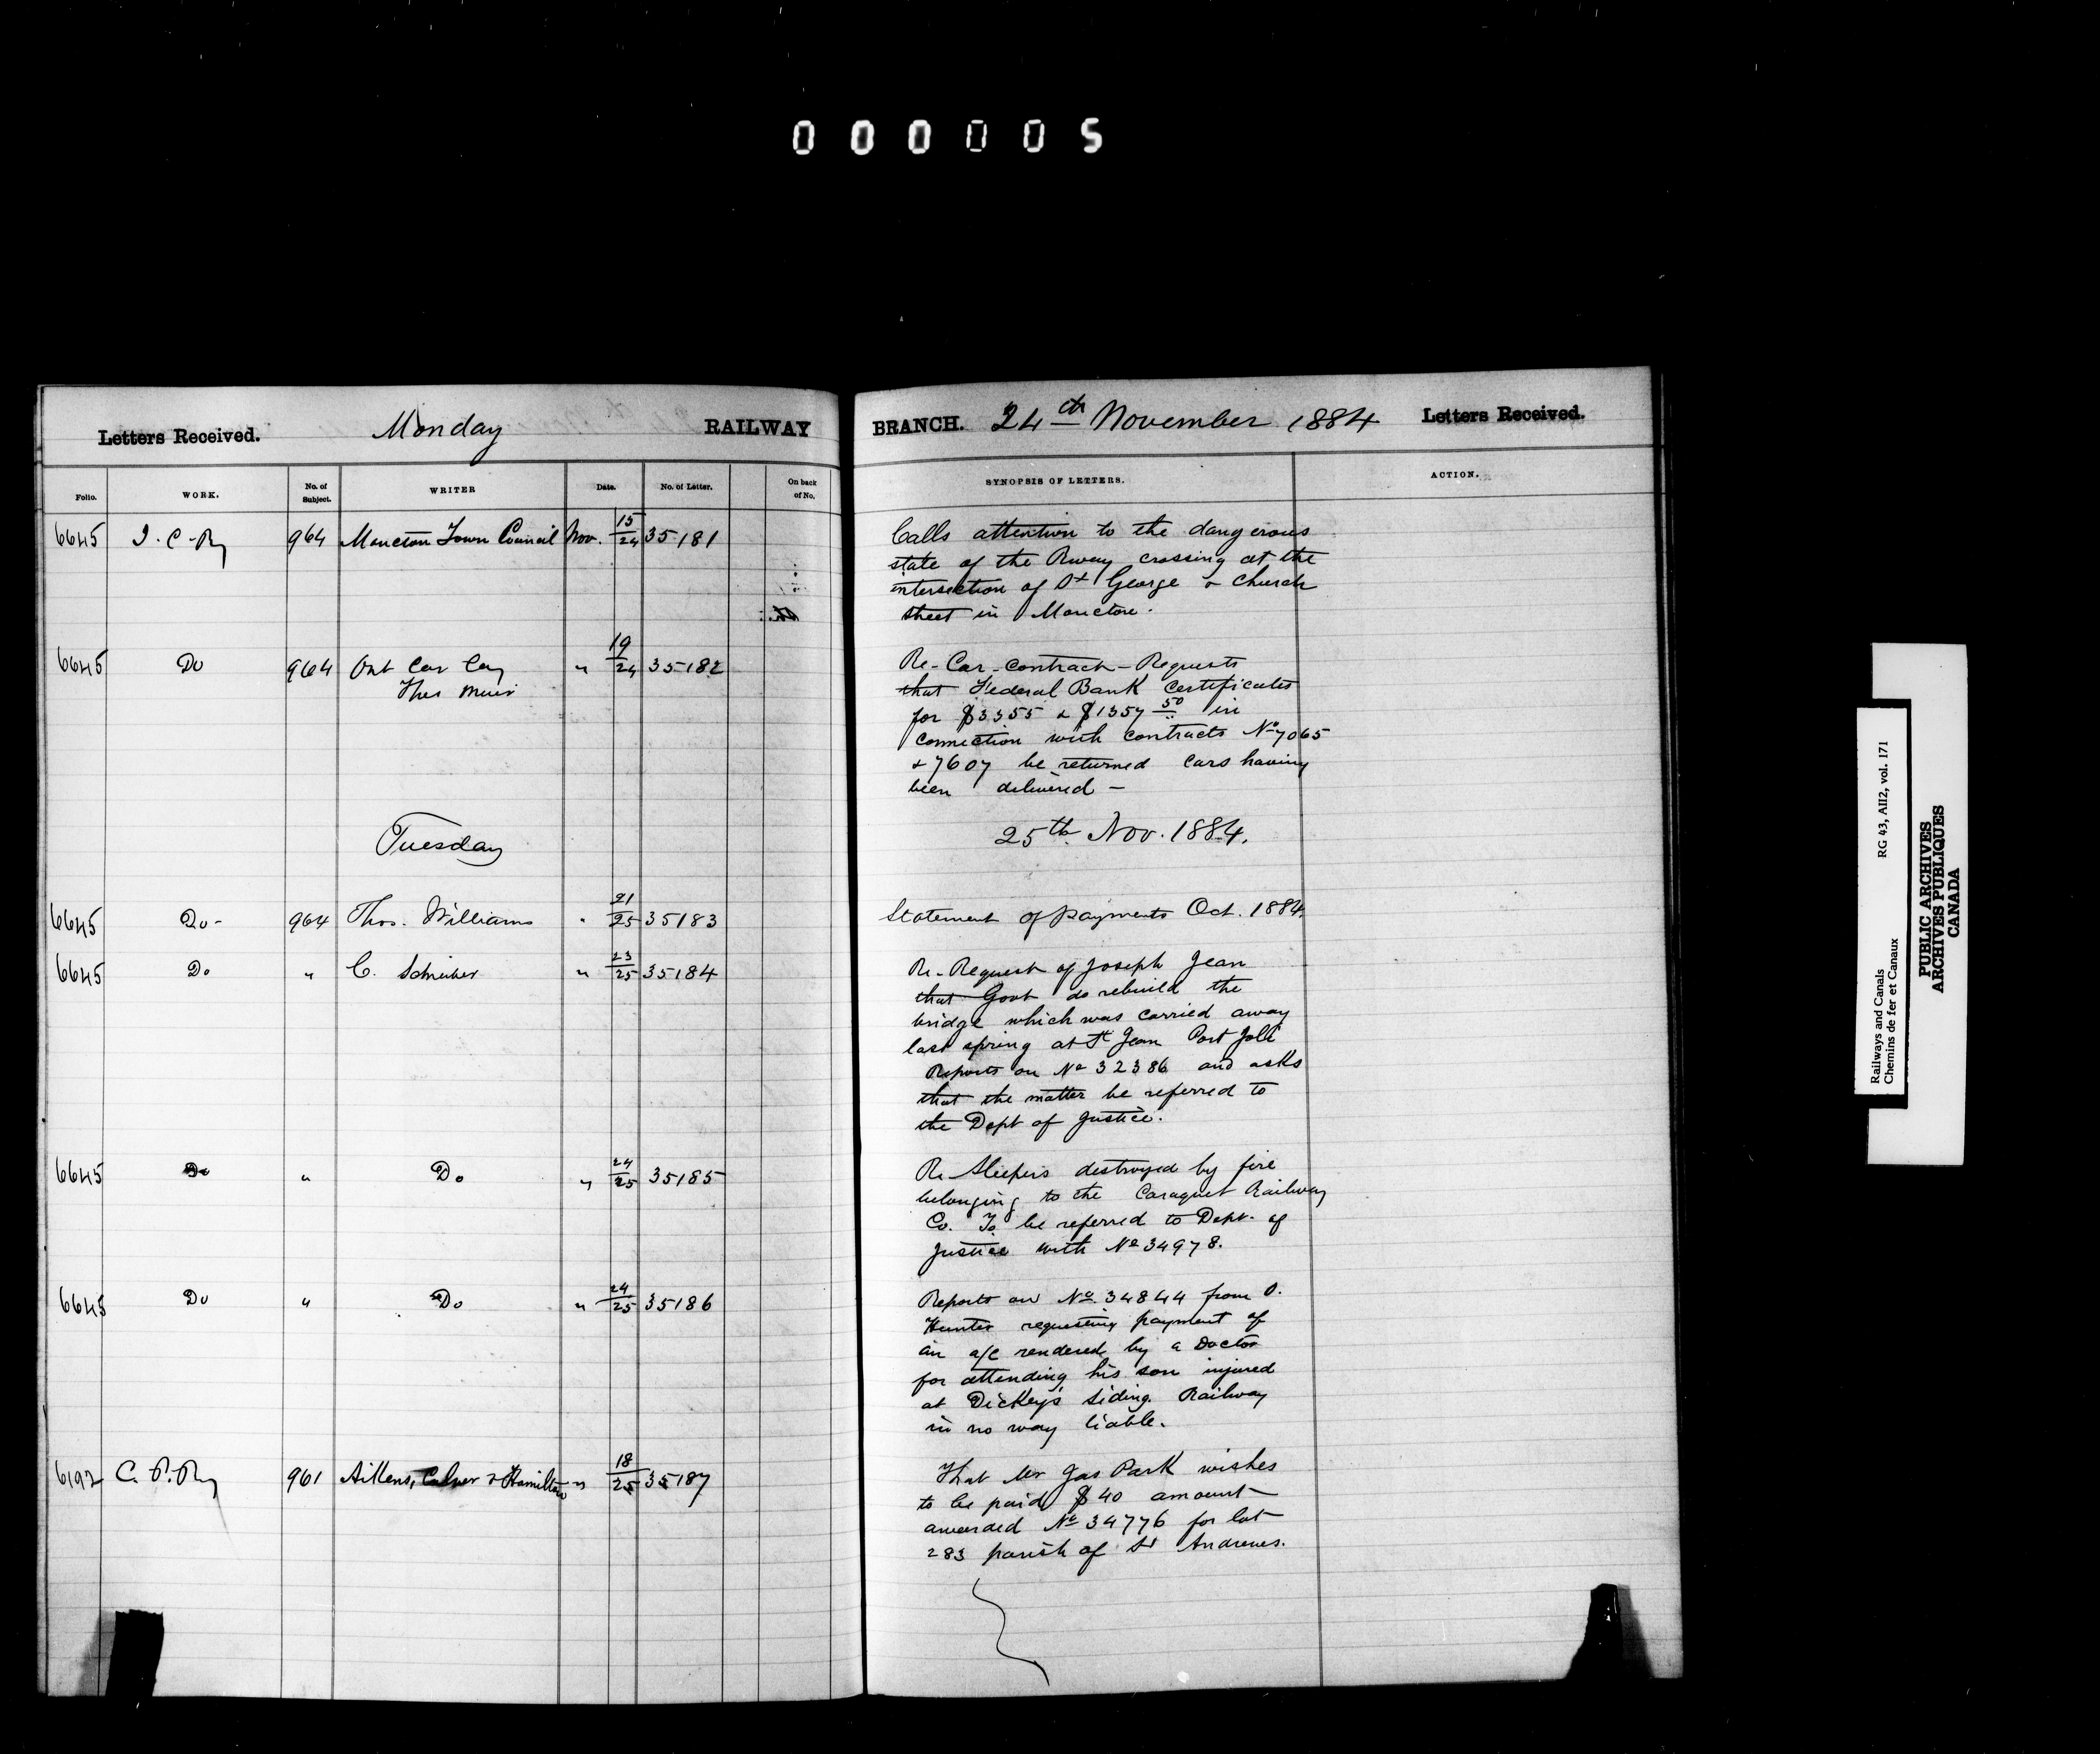 000005
Letters Received. Monday RAILWAY BRANCH. 24th November 1884 Letters Received.
Folio. WORK. No. of Subject. WRITER Date. No. of Letter. On back of No. SYNOPSIS OF LETTERS. ACTION.
6645 I. C. Ry 964 Moncton Town Council Nov. 15/24 35181 Calls attention to the dangerous
state of the Rway crossing at the
intersection of St George & Church
street in Moncton.
6645 Do 964 Ont Car Coy " 19/24 35182 Re-Car-contract-Requests
Thos Muir that Federal Bank Certificates
for $3355 & $1357 50 in
connection with contracts No 7065
& 7607 be returned cars having
been delivered -
Tuesday 25th Nov. 1884.
6645 Do- 964 Thos. Williams " 21/25 35183 Statement of payments Oct. 1884.
6645 Do " C. Schreiber " 23/25 35184 Re-Request of Joseph Jean
that Govt do rebuild the
bridge which was carried away
last spring at St Jean Port Joli
Reports on No 32386 and asks
that the matter be referred to
the Dept of Justice.
6645 Do " Do " 24/25 35185 Re Sleepers destroyed by fire
belonging to the Caraquet Railway
Co. To be referred to Dept. of
Justice with No 34978.
6645 Do " Do " 24/25 35186 Reports on No. 34844 from O.
Hunter requesting payment of
an a/c rendered by a Doctor
for attending his son injured
at Dickey's Siding. Railway
in no way liable.
6192 C. P. Ry 961 Aikens, Culver & Hamilton " 18/25 35187 That Mr Jas Park wishes
to be paid $40 amount
awarded No 34776 for lot
283 parish of St Andrews.
Railways and Canals RG 43, AII2, vol. 171
Chemins de fer et Canaux
PUBLIC ARCHIVES
ARCHIVES PUBLIQUES
CANADA